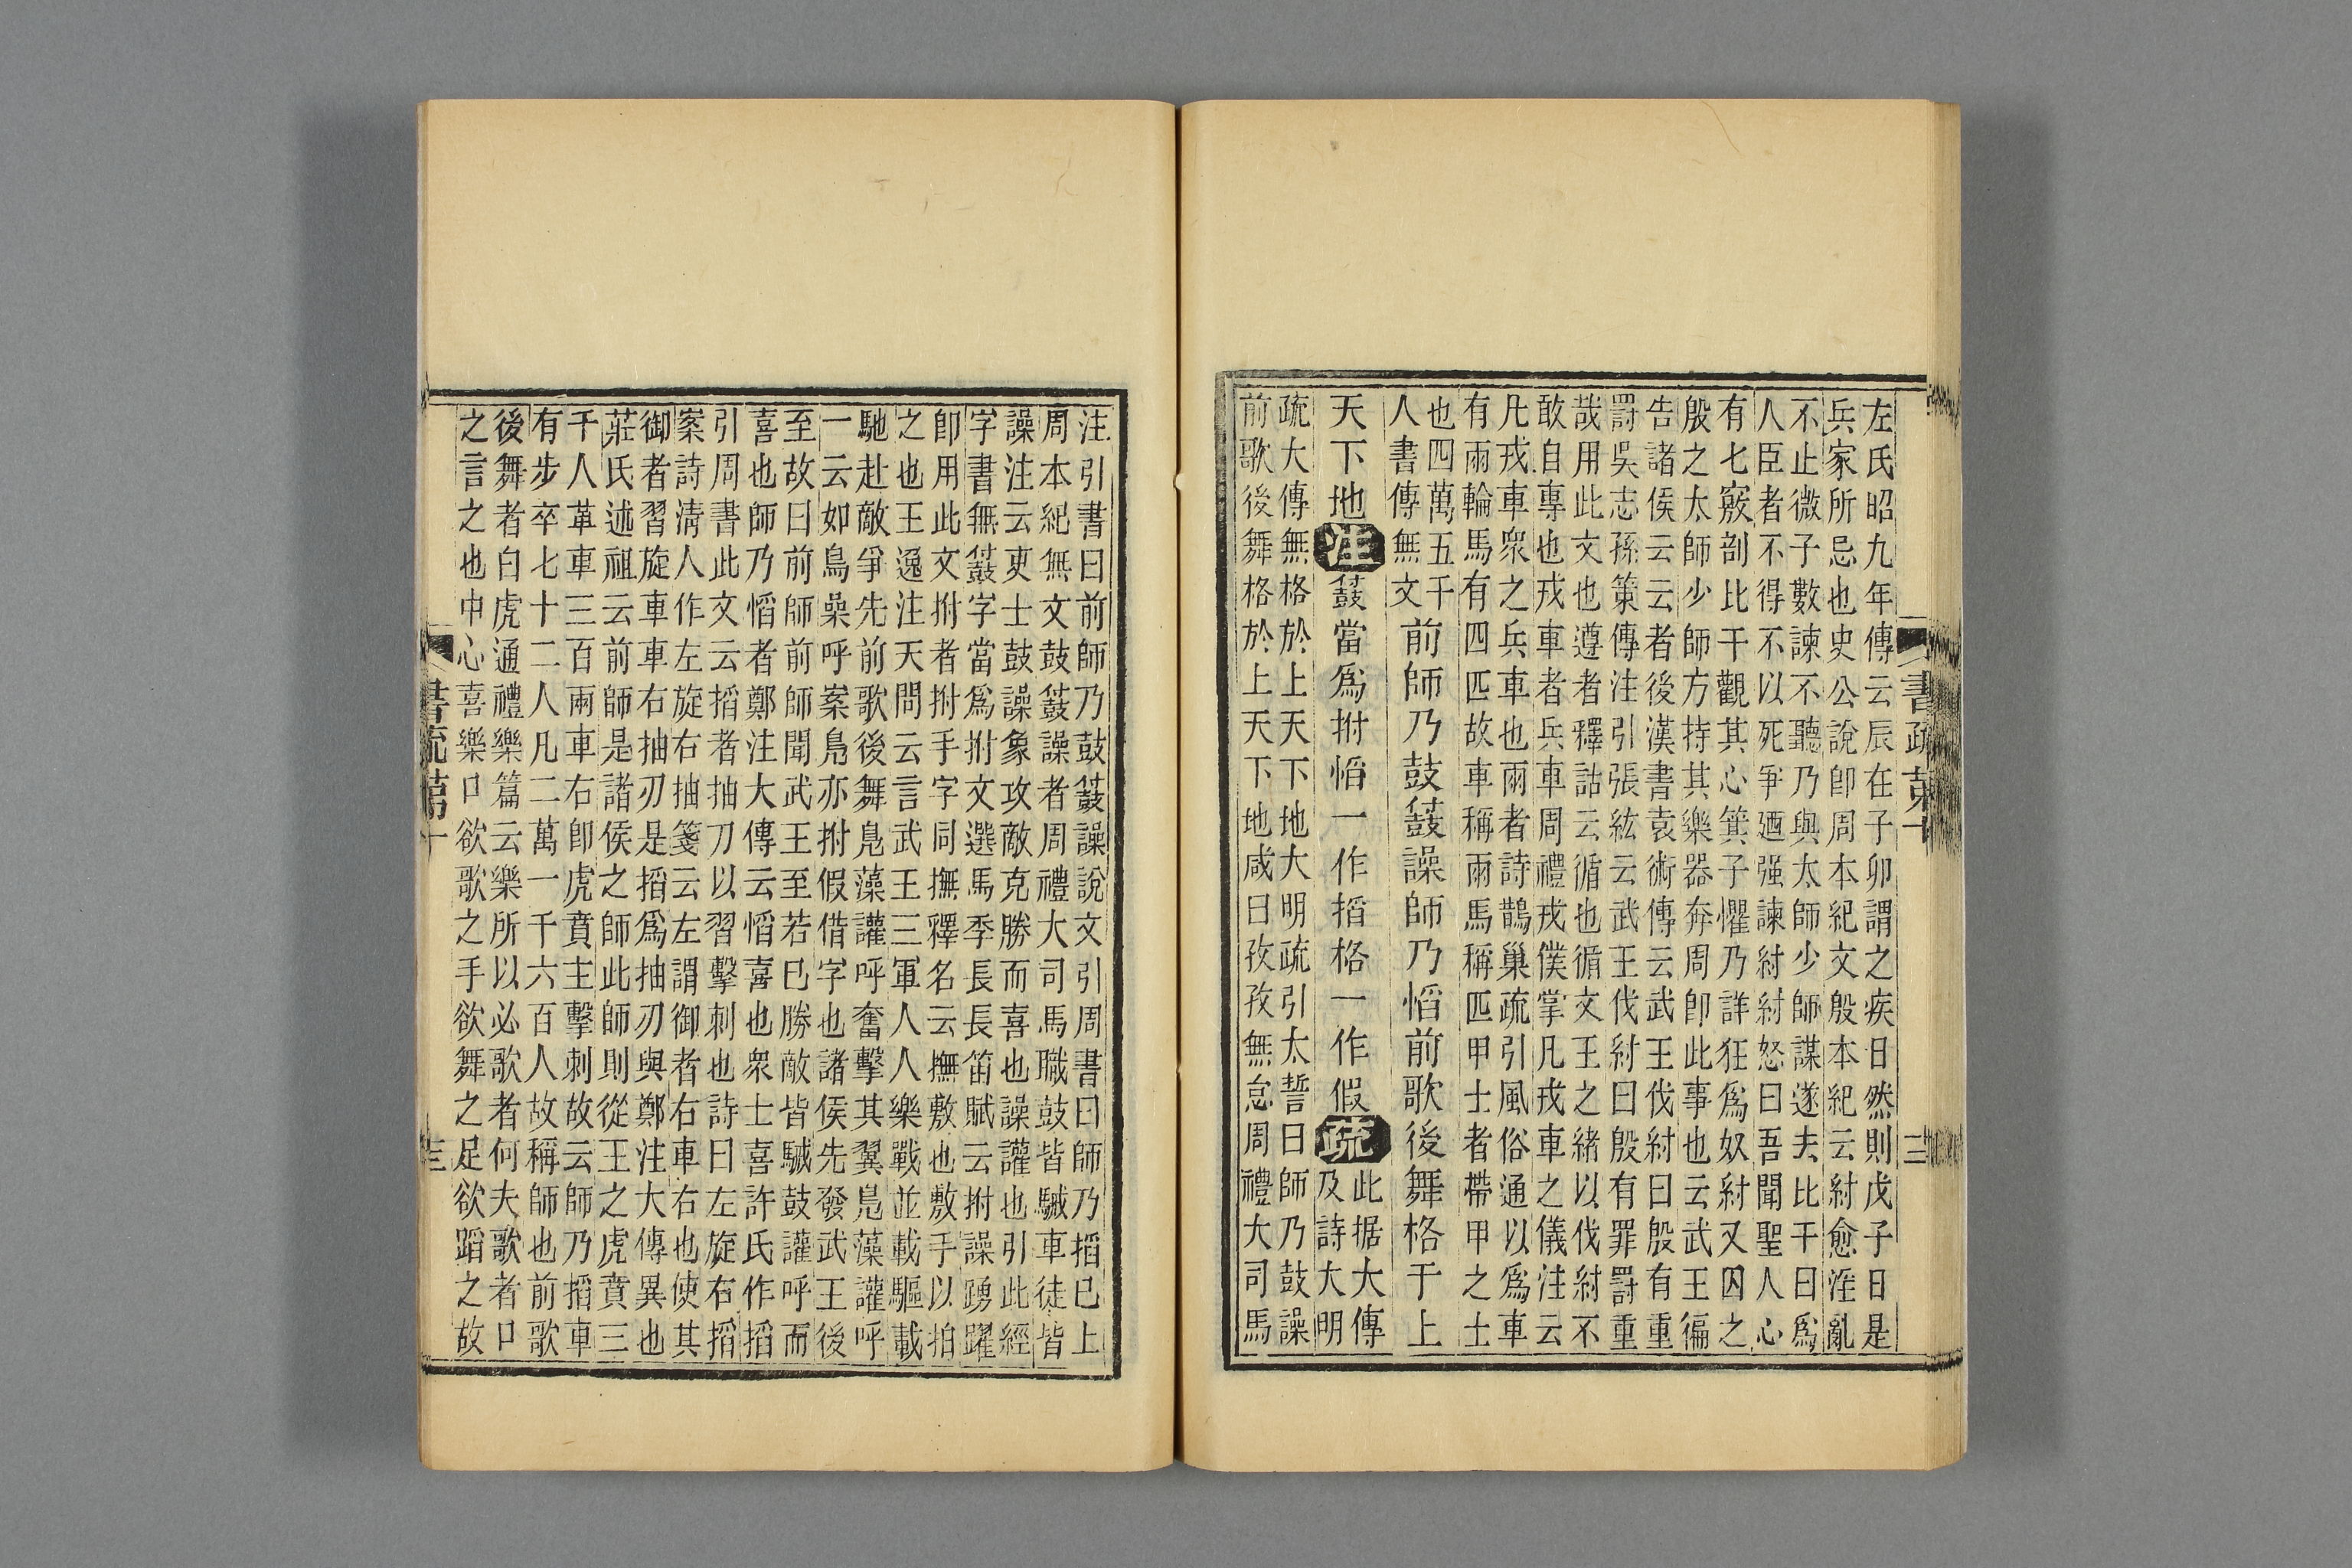 左氏昭九年傳云辰在子卯謂之疾日然則戊子日是
兵家所忌也史公說卽周本紀文殷本紀云紂愈淫亂
不止微子數諫不聽乃與太師少師謀遂去比干曰爲
人臣者不得不以死爭廼强諫紂紂怒曰吾聞聖人心
有七竅剖比干觀其心箕子懼乃詳狂爲奴紂又囚之
殷之太師少師方持其樂器奔周卽此事也云武王徧
告諸侯云云者後漢書袁術傳云武王伐紂曰殷有重
罰吳志孫策傳注引張紘云武王伐紂曰殷有罪罰重
哉用此文也遵者釋詁云循也循文王之緒以伐紂不
敢自專也戎車者兵車周禮戎僕掌凡戎車之儀注云
凡戎車眾之兵車也兩者詩鵲巢疏引風俗通以爲車
有兩輪馬有四匹故車稱兩馬稱匹甲士者帶甲之士
也四萬五千
人書傳無文
前師乃鼓鼖譟師乃慆前歌後舞格于上
天下地注鼖當爲拊慆一作搯格一作假疏
此据大傳
及詩大明
疏大傳無格於上天下地大明疏引太誓曰師乃鼓譟
前歌後舞格於上天下地咸曰孜孜無怠周禮大司馬
書疏第十
三
注引書曰前師乃鼓鼖譟說文引周書曰師乃搯已上
周本紀無文鼓鼖譟者周禮大司馬職鼓皆駴車徒皆
譟注云吏士鼓譟象攻敵克勝而喜也譟讙也引此經
字書無鼖字當爲拊文選馬季長長笛賦云拊譟踴躍
卽用此文拊者拊手字同撫釋名云撫敷也敷手以拍
之也王逸注天問云言武王三軍人人樂戰並載驅載
馳赴敵爭先前歌後舞鳧藻讙呼奮擊其翼鳧藻讙呼
一云如鳥噪呼案鳧亦拊假借字也諸侯先發武王後
至故曰前師前師聞武王至若已勝敵皆駴鼓讙呼而
喜也師乃慆者鄭注大傳云慆喜也眾士喜許氏作搯
引周書此文云搯者抽刀以習擊刺也詩曰左旋右搯
案詩淸人作左旋右抽箋云左謂御者右車右也使其
御者習旋車車右抽刃是搯爲抽刃與鄭注大傳異也
莊氏述祖云前師是諸侯之師此師則從王之虎賁三
千人革車三百兩車右卽虎賁主擊刺故云師乃搯車
有步卒七十二人凡二萬一千六百人故稱師也前歌
後舞者白虎通禮樂篇云樂所以必歌者何夫歌者口
之言之也中心喜樂口欲歌之手欲舞之足欲蹈之故
書疏第十
三